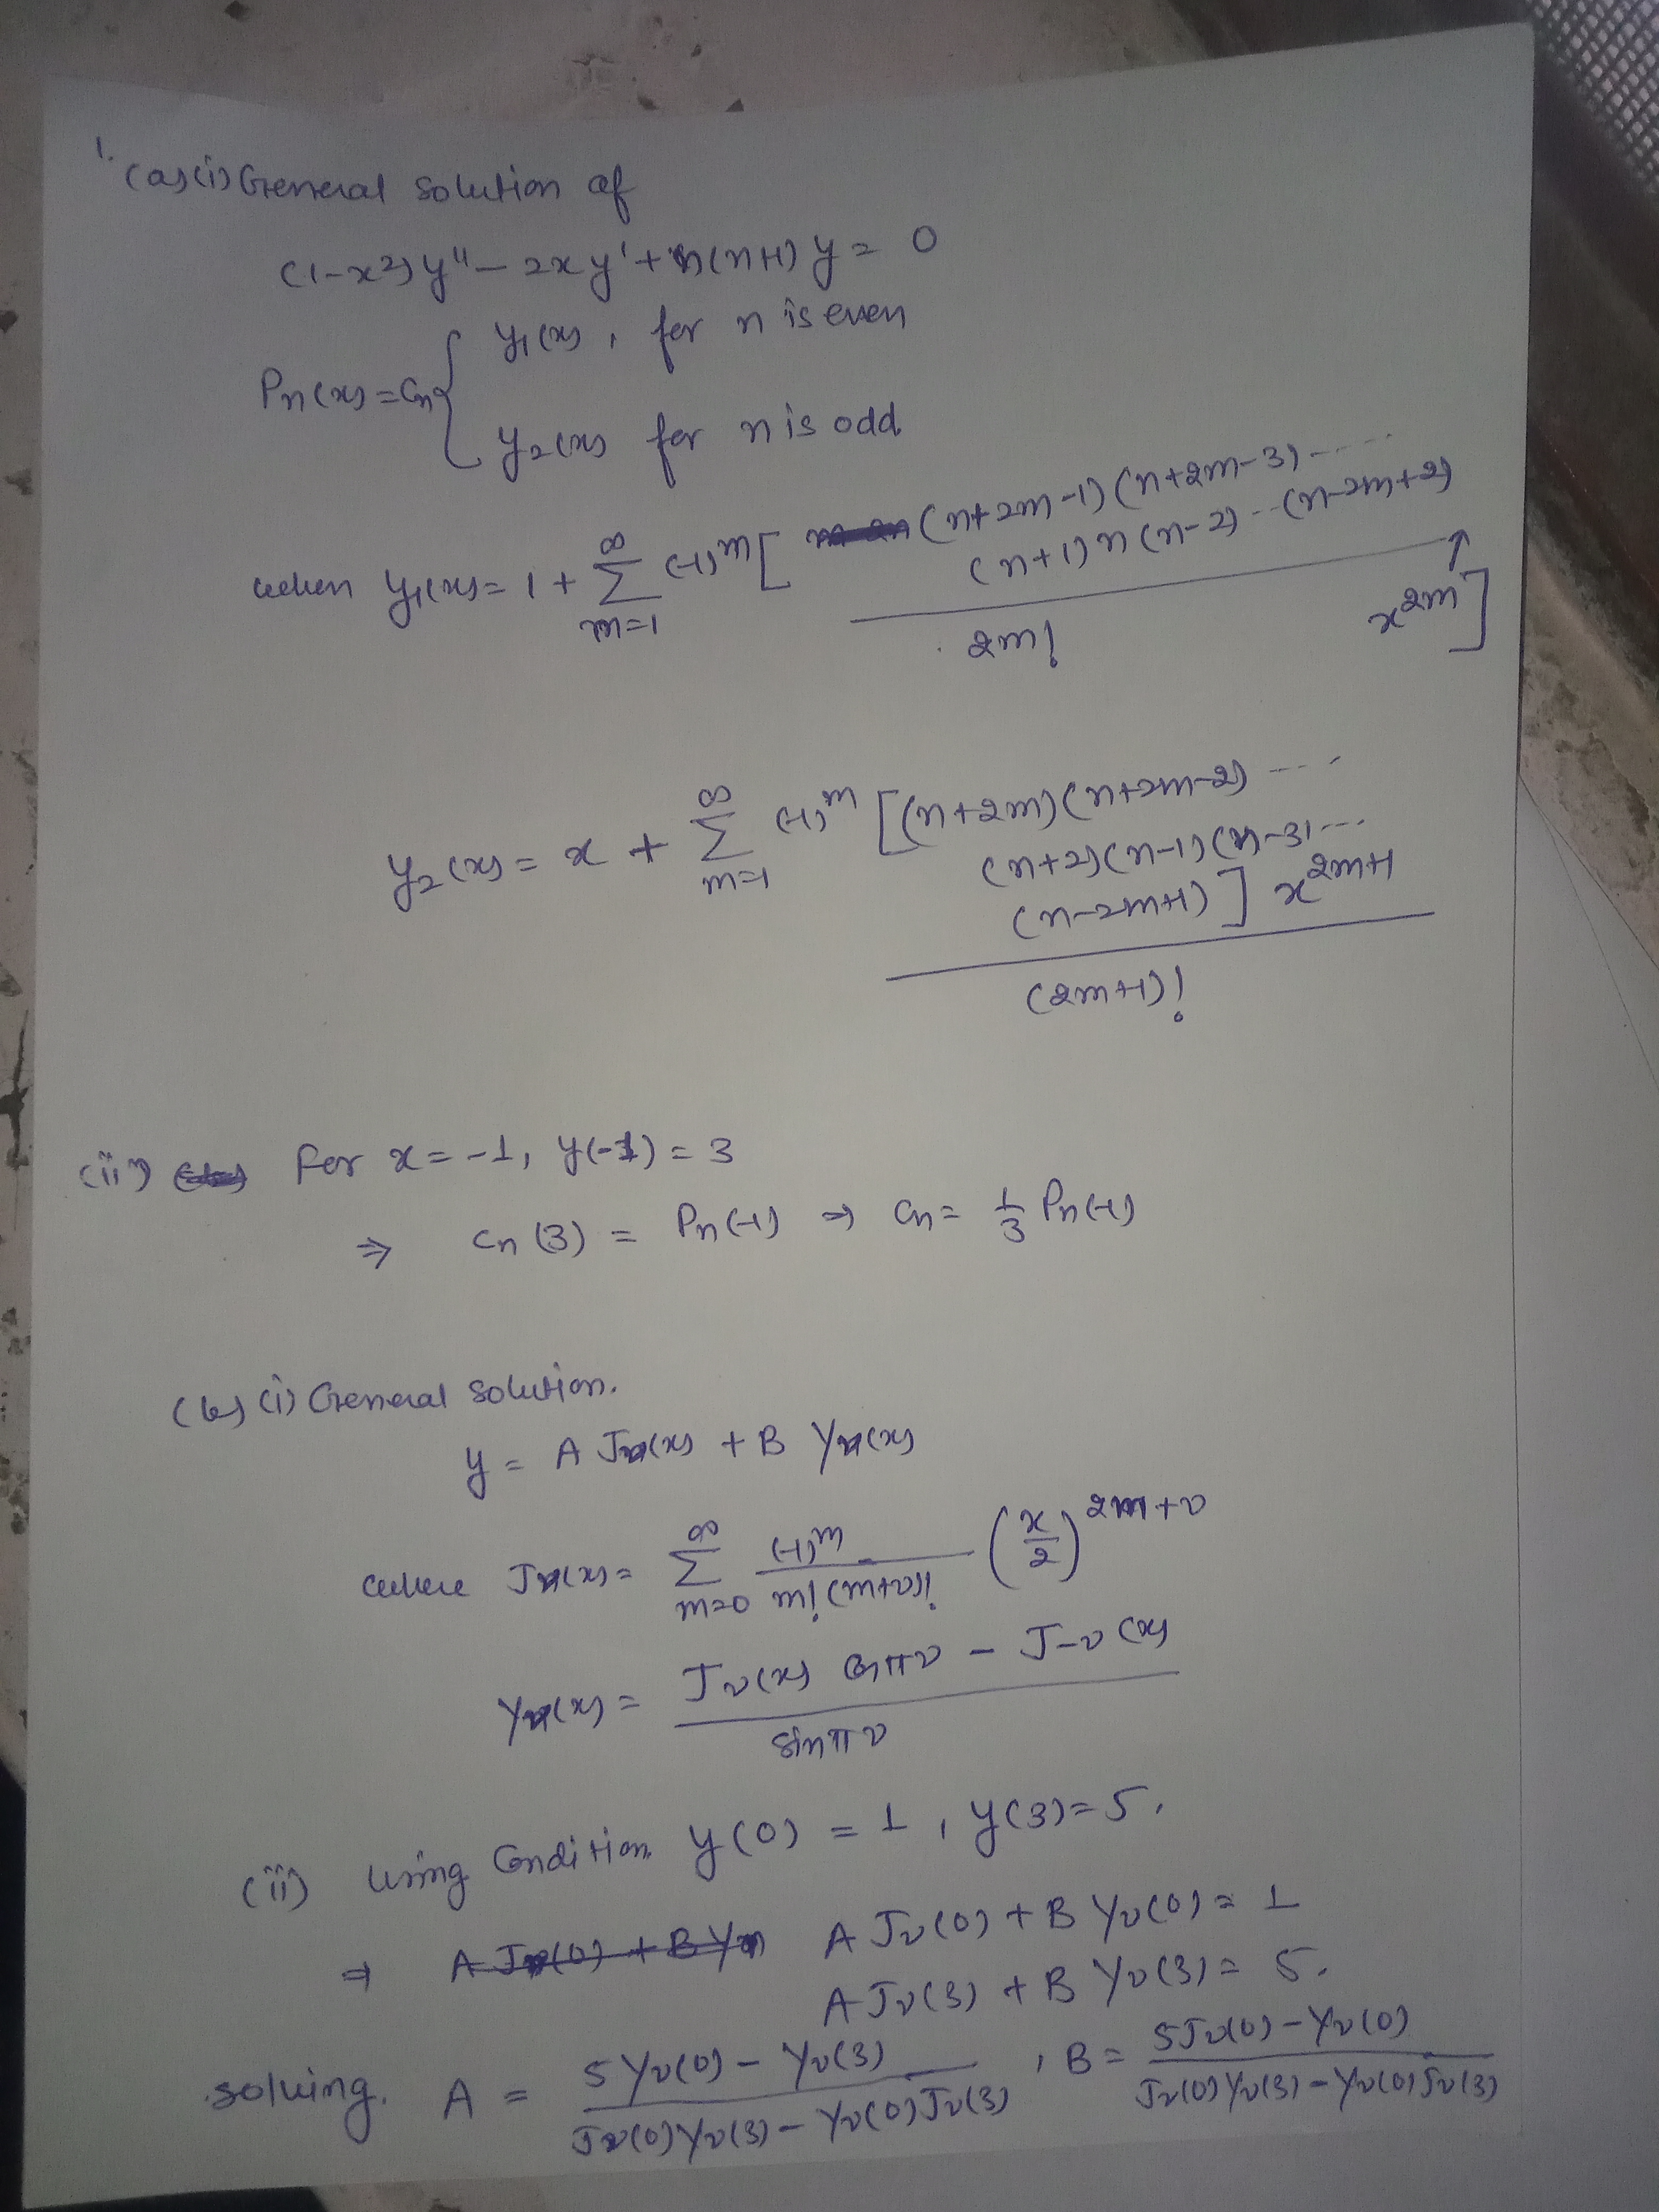 1.
(a)(i) General solution of
(1-x²)y'' - 2xy' + n(n+1)y = 0
Pn(x) = Cn { y₁(x), for n is even
y₂(x) for n is odd
when y₁(x) = 1 + ∞ Σ m=1 (-1)^m [ (n+2m-1)(n+2m-3) ....
(n+1) n (n-2) -- (n-2m+2)
2m! x^2m ]
y₂(x) = x + ∞ Σ m=1 (-1)^m [(n+2m)(n+2m-2) ....
(n+2)(n-1)(n-3) ...
(n-2m+1)] x^2m+1
(2m+1)!
(ii) For x = -1, y(-1) = 3
⇒ Cn (3) = Pn(-1) ⇒ Cn = 1/3 Pn(-1)
(b) (i) General solution.
y = A Jν(x) + B Yν(x)
where Jν(x) = ∞ Σ m=0 (-1)^m / m! (m+ν)! (x/2)^2m+ν
Yν(x) = Jν(x) cos πν - J-ν(x) / sin πν
(ii) Using Condition y(0) = 1, y(3) = 5.
⇒ A Jν(0) + B Yν(0) = 1
A Jν(3) + B Yν(3) = 5.
solving. A = 5 Yν(0) - Yν(3) / Jν(0) Yν(3) - Yν(0) Jν(3) , B = 5 Jν(0) - Yν(0) / Jν(0) Yν(3) - Yν(0) Jν(3)